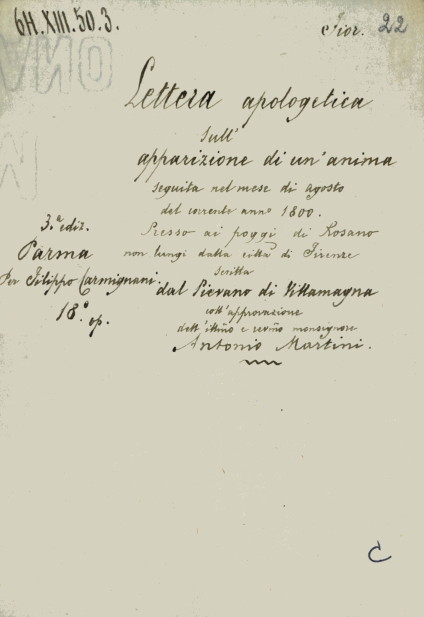 6H.XIII.50.3.
Fior. 22
Lettera apologetica
sull'
apparizione di un'anima
seguita nel mese di agosto
del corrente anno 1800.
Presso ai poggi di Rosano
non lungi dalla città di Firenze
scritta
dal Pievano di Villamagna
coll'approvazione
dell'illmo e revmo monsignore
Antonio Martini.
3.a ediz.
Parma
Per Filippo Carmignani
18.o op.
C